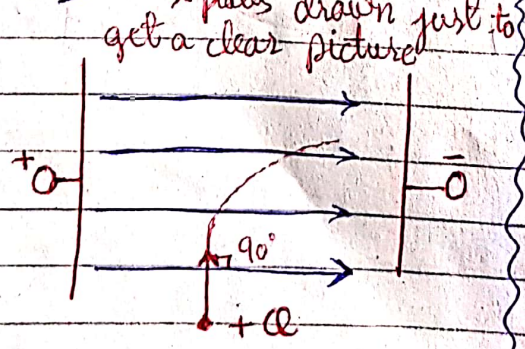 drawn just to
get a clear picture
+
−
90°
+Q